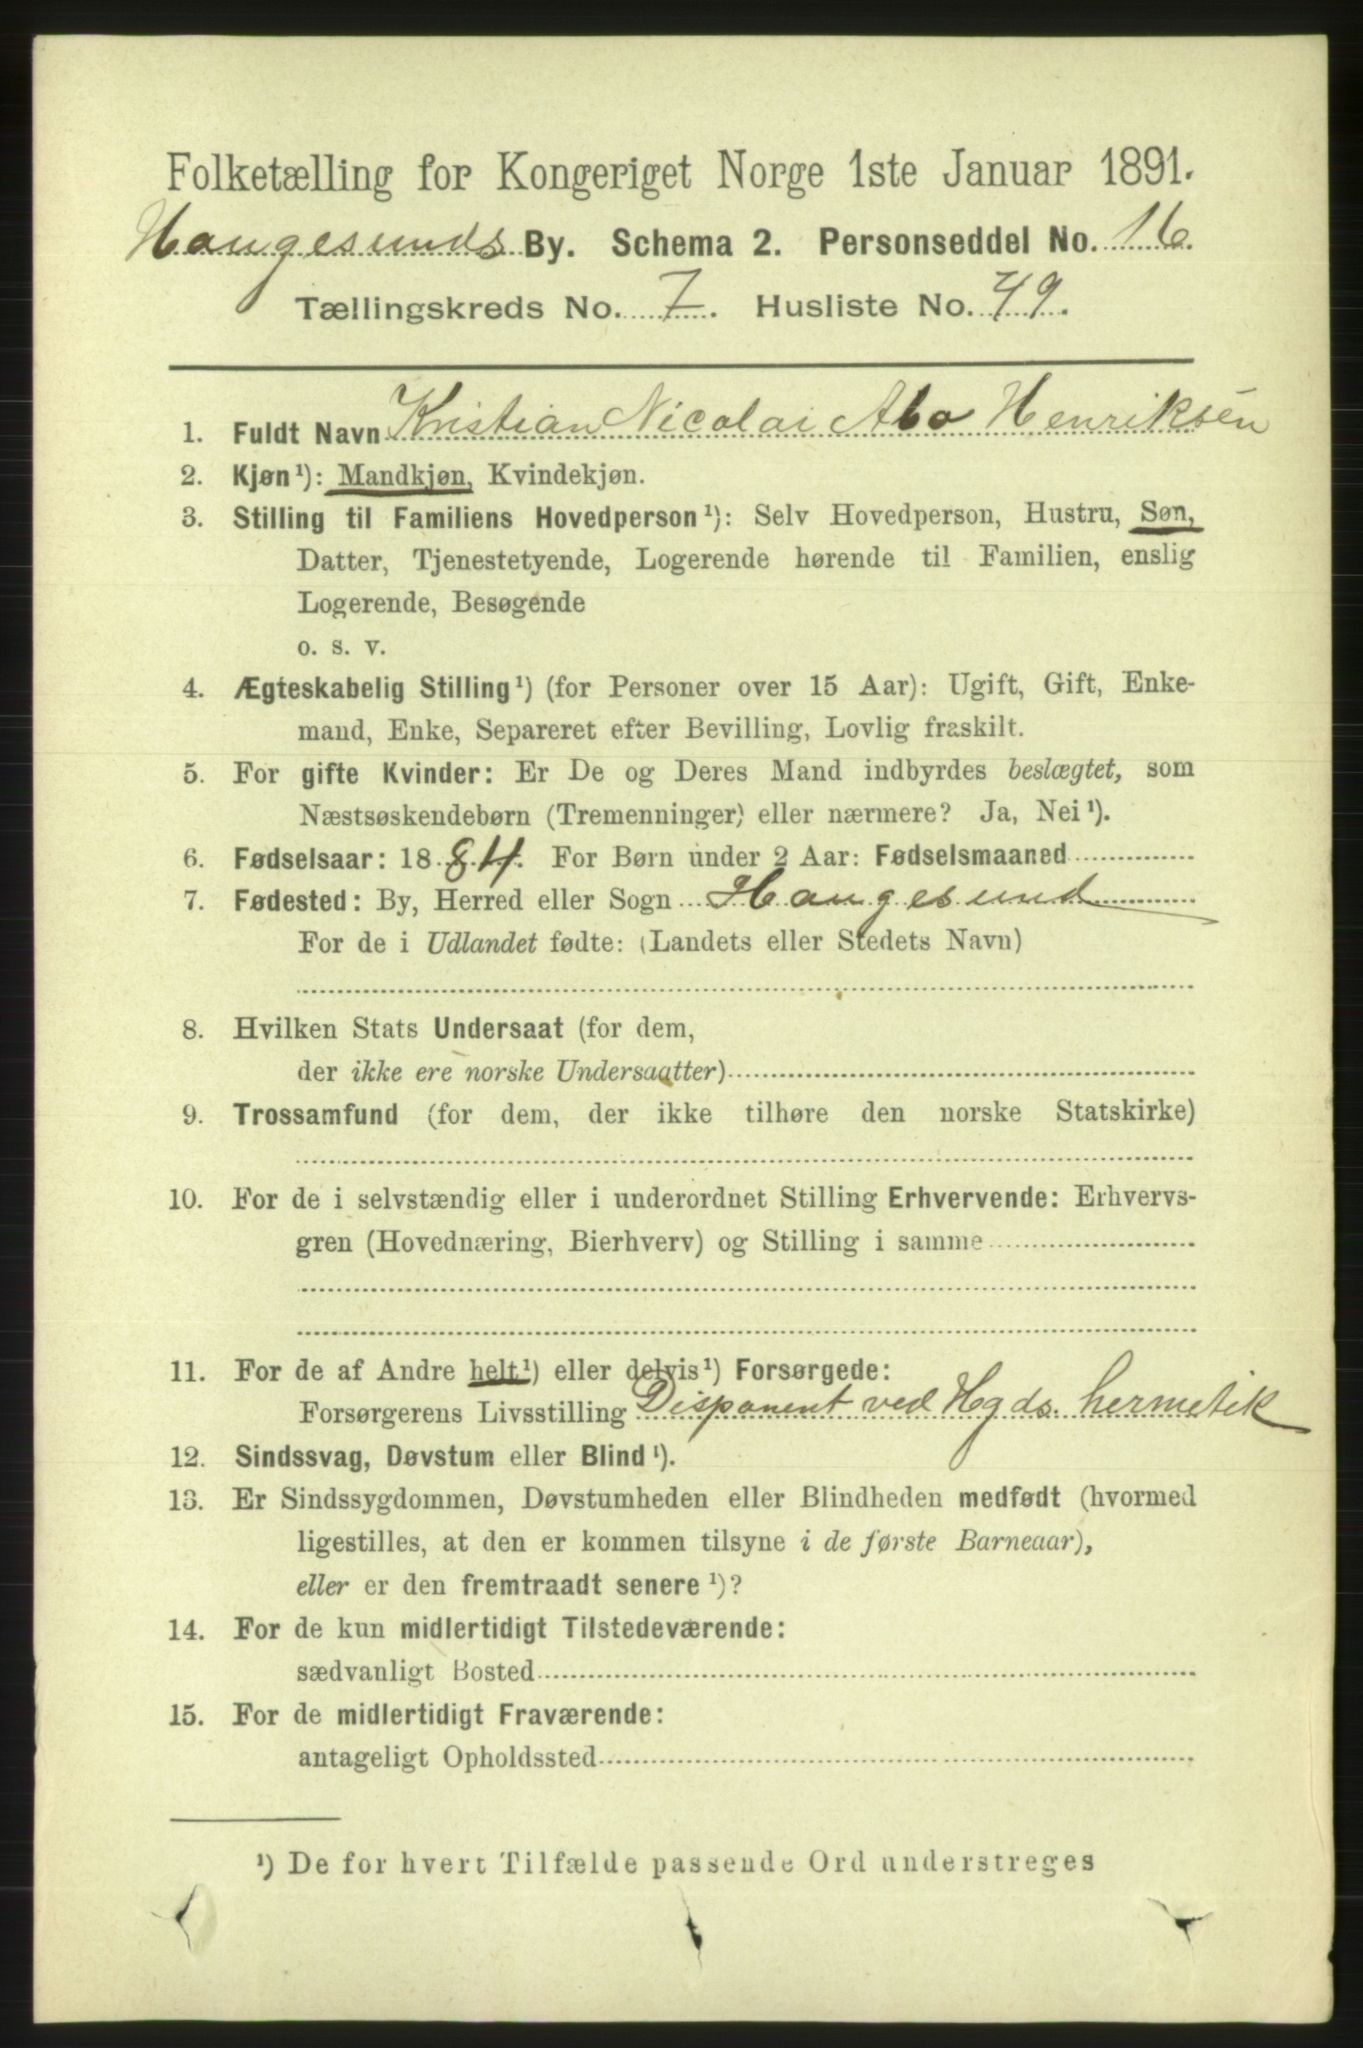 Folketælling for Kongeriget Norge 1ste Januar 1891.
Haugesunds By. Schema 2. Personseddel No. 16.
Tællingskreds No. 7. Husliste No. 49.
1. Fuldt Navn Kristian Nicolai Abo Henriksén
2. Kjøn¹): Mandkjøn, Kvindekjøn.
3. Stilling til Familiens Hovedperson¹): Selv Hovedperson, Hustru, Søn,
Datter, Tjenestetyende, Logerende hørende til Familien, enslig
Logerende, Besøgende
o. s. v.
4. Ægteskabelig Stilling¹) (for Personer over 15 Aar): Ugift, Gift, Enke-
mand, Enke, Separeret efter Bevilling, Lovlig fraskilt.
5. For gifte Kvinder: Er De og Deres Mand indbyrdes beslægtet, som
Næstsøskendebørn (Tremenninger) eller nærmere? Ja, Nei¹).
6. Fødselsaar: 1884. For Børn under 2 Aar: Fødselsmaaned
7. Fødested: By, Herred eller Sogn Haugesund
For de i Udlandet fødte: (Landets eller Stedets Navn)
8. Hvilken Stats Undersaat (for dem,
der ikke ere norske Undersaatter)
9. Trossamfund (for dem, der ikke tilhøre den norske Statskirke)
10. For de i selvstændig eller i underordnet Stilling Erhvervende: Erhvervs-
gren (Hovednæring, Bierhverv) og Stilling i samme
11. For de af Andre helt¹) eller delvis¹) Forsørgede:
Forsørgerens Livsstilling Disponent ved Hgds. hermetik
12. Sindssvag, Døvstum eller Blind¹).
13. Er Sindssygdommen, Døvstumheden eller Blindheden medfødt (hvormed
ligestilles, at den er kommen tilsyne i de første Barneaar),
eller er den fremtraadt senere¹)?
14. For de kun midlertidigt Tilstedeværende:
sædvanligt Bosted
15. For de midlertidigt Fraværende:
antageligt Opholdssted
¹) De for hvert Tilfælde passende Ord understreges